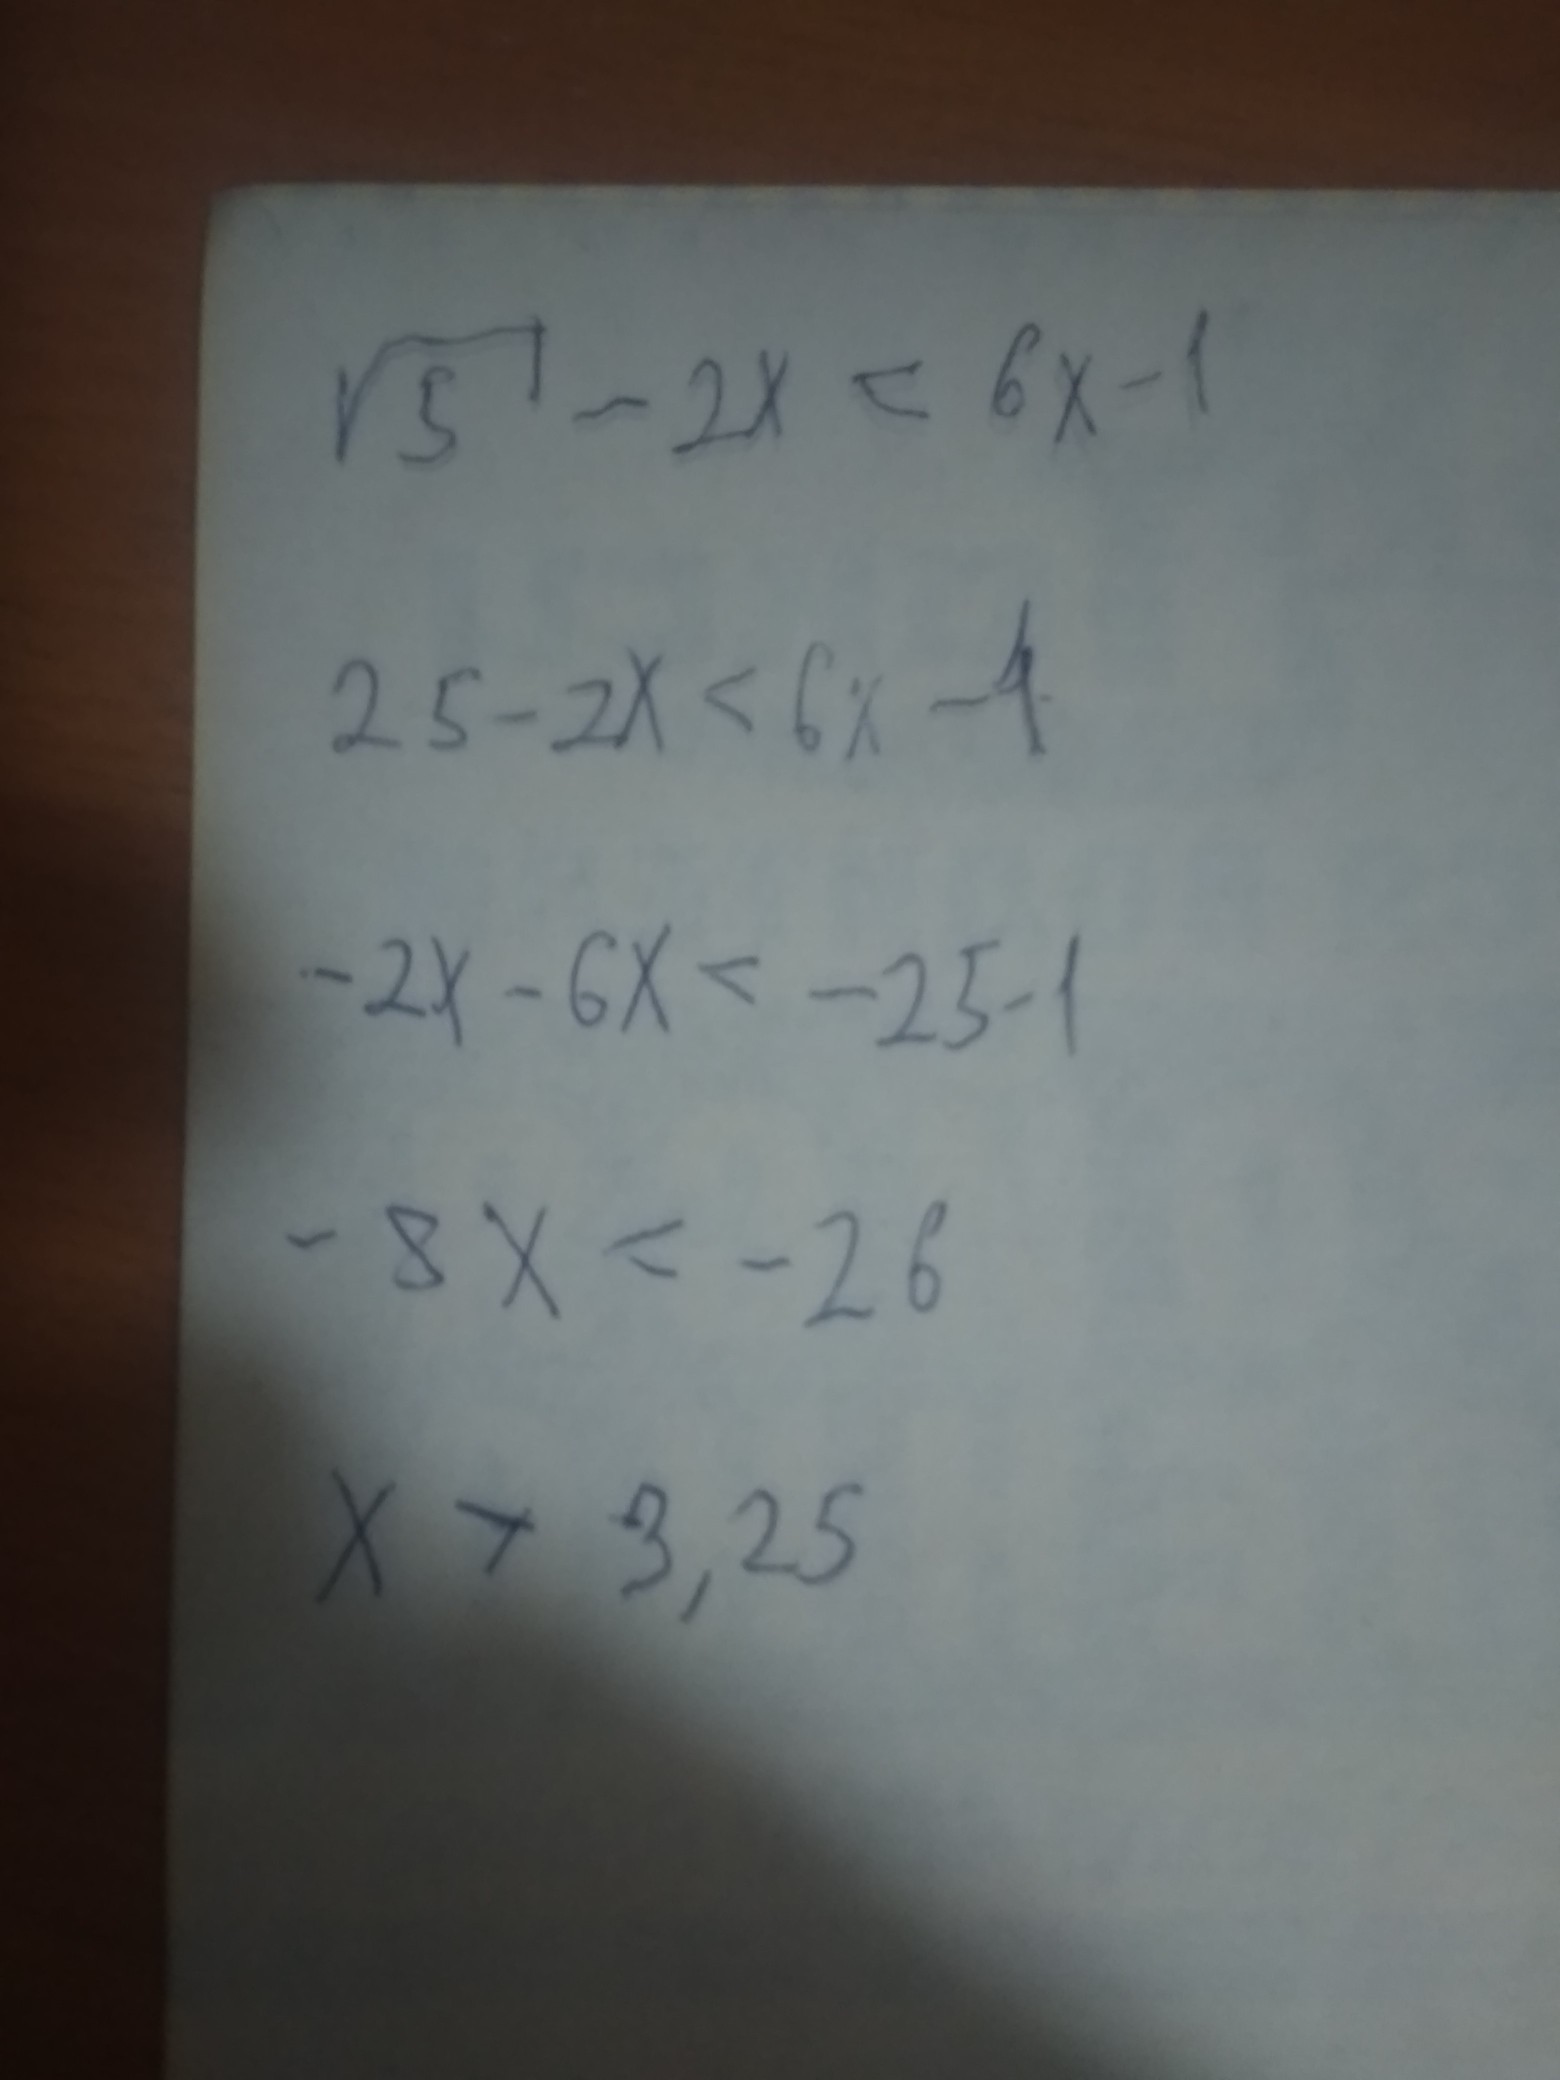 √5 - 2x < 6x - 1
25 - 2x < 6x - 1
-2x - 6x < -25 - 1
-8x < -26
x > 3,25